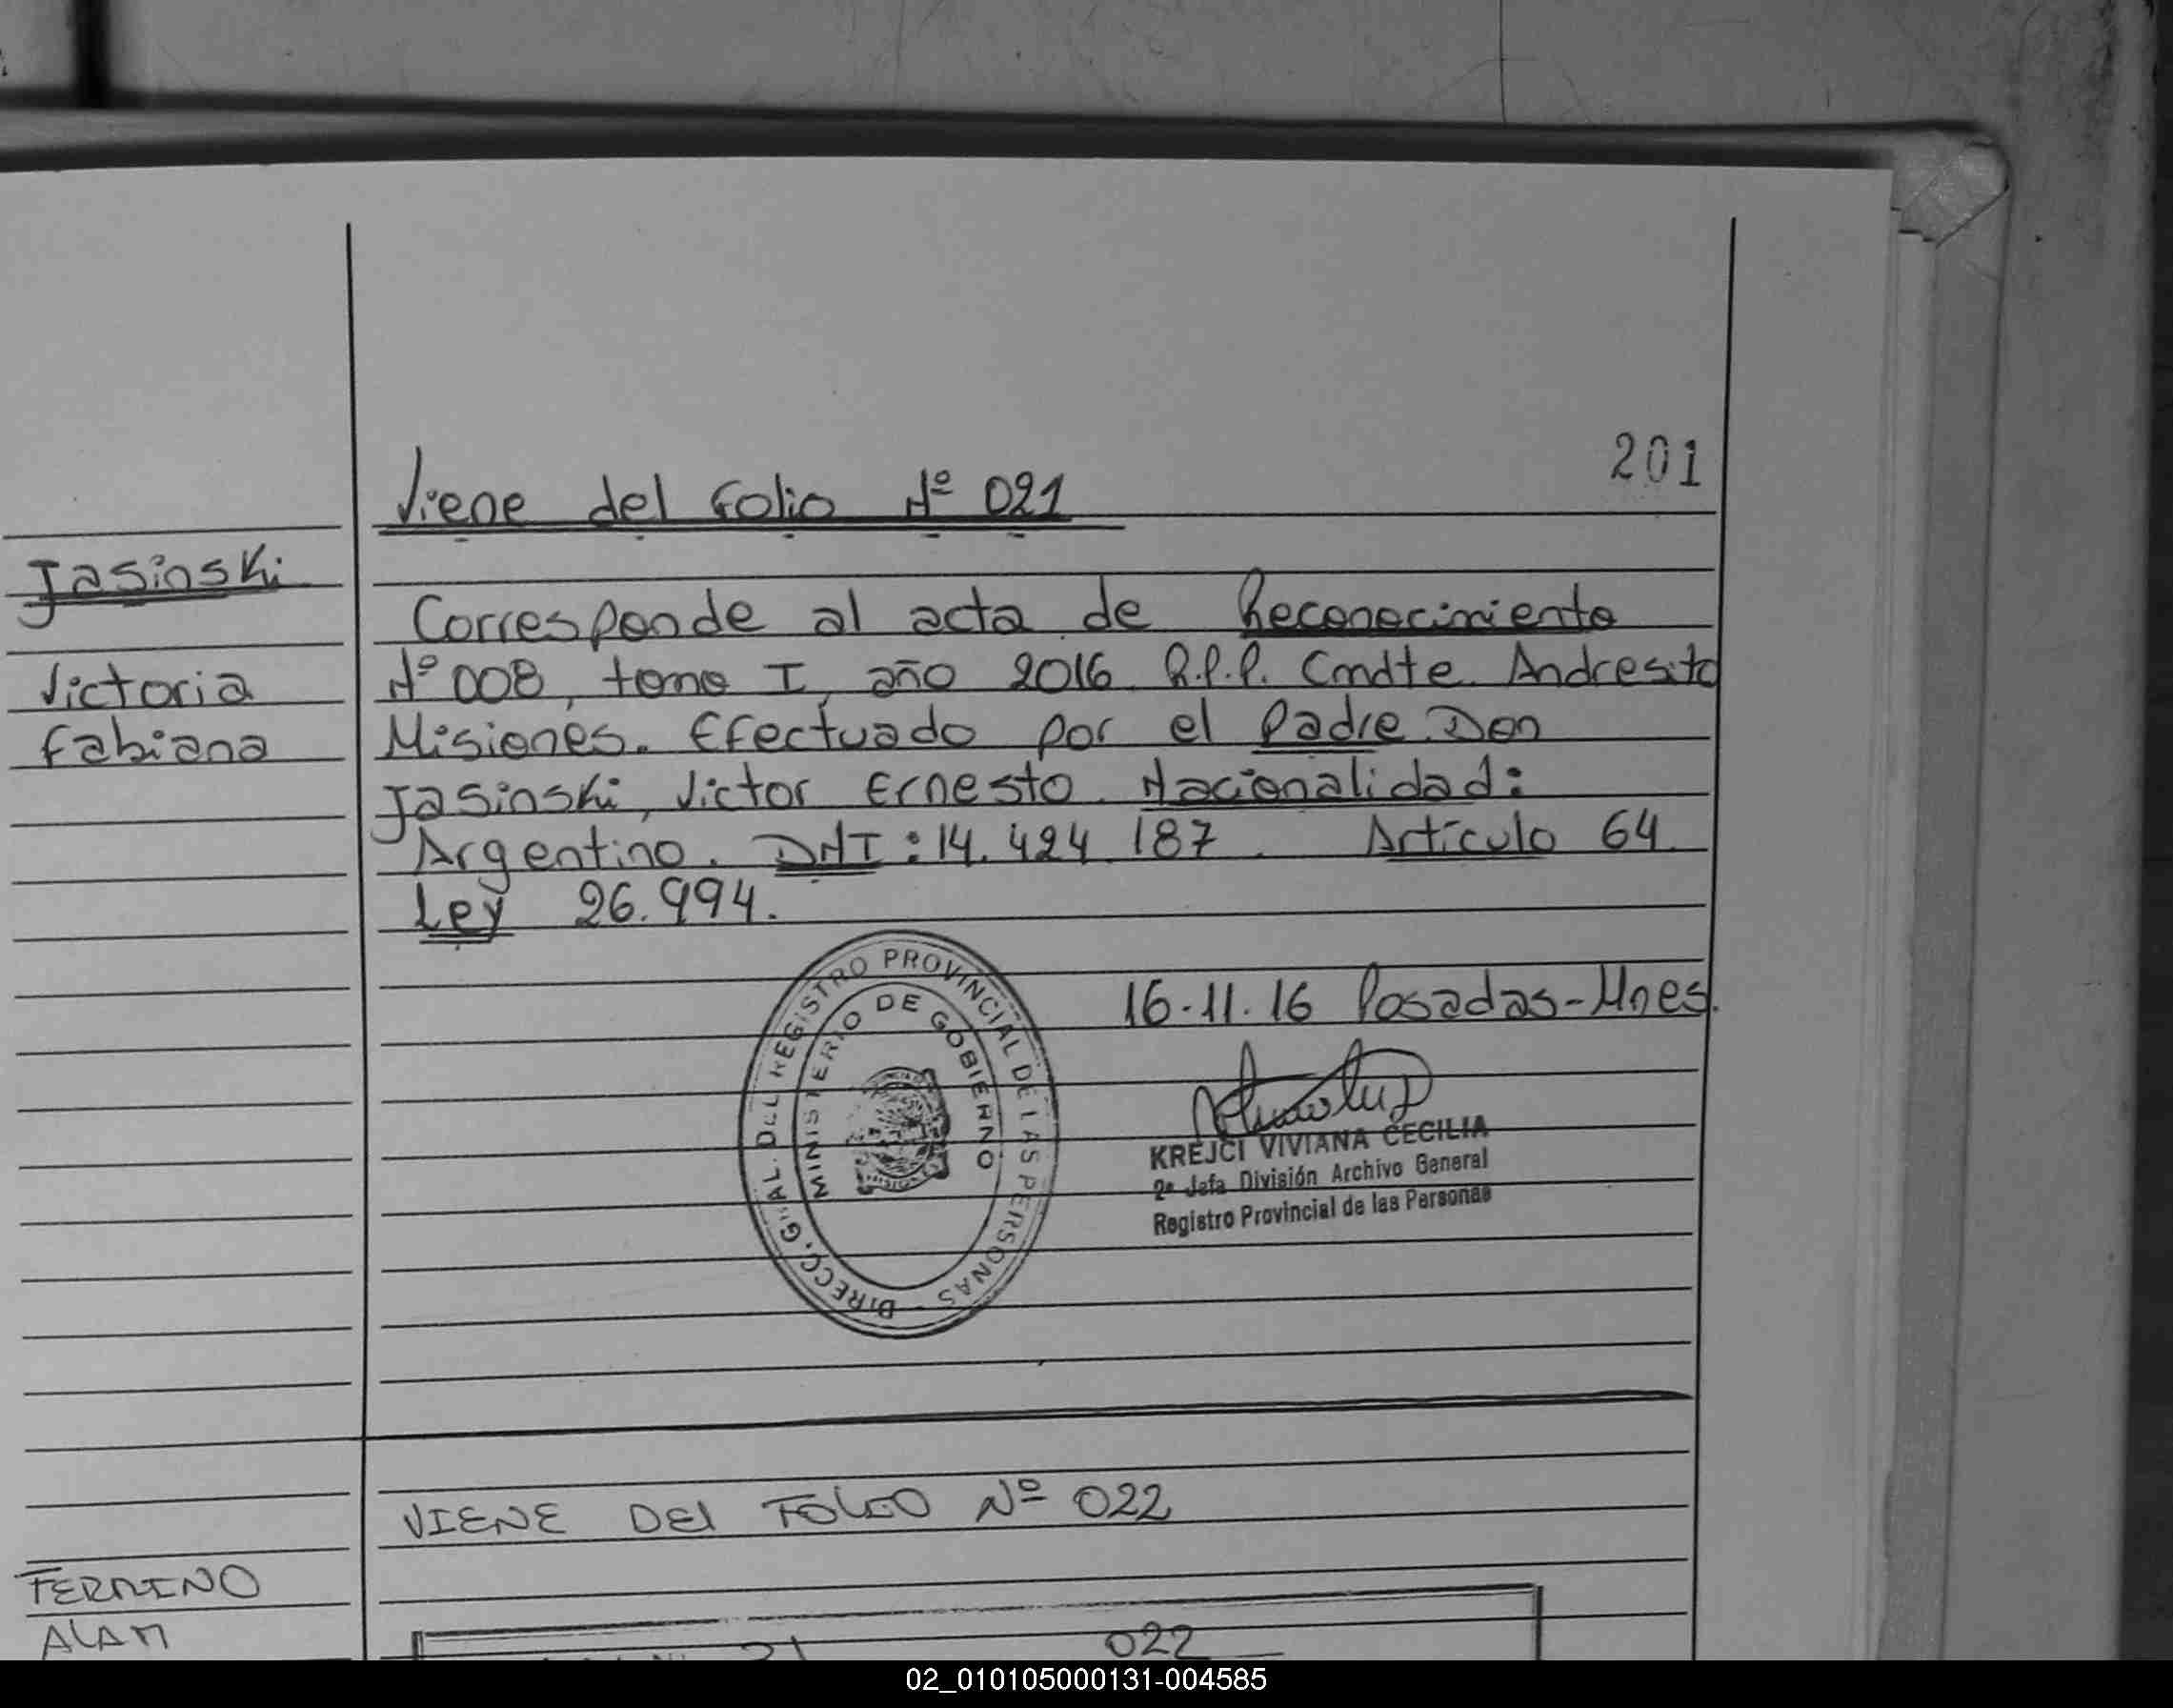 201
Viene del Folio Nº 021
Jasinski
Victoria
Fabiana
Corresponde al acta de Reconocimiento
Nº 008, tomo I, año 2016. R.P.P. Cmdte. Andresito
Misiones. Efectuado por el Padre Don
Jasinski, Victor Ernesto. Nacionalidad:
Argentino. DNI: 14.424.187. Artículo 64
Ley 26.994.
16-11.16 Posadas-Mnes.
DIRECC. GRAL. DEL REGISTRO PROVINCIAL DE LAS PERSONAS -
MINISTERIO DE GOBIERNO
KREJCI VIVIANA CECILIA
2ª Jefa División Archivo General
Registro Provincial de las Personas
VIENE DEL FOLIO Nº 022
FERMINO
ALAM
21 022
02_010105000131-004585